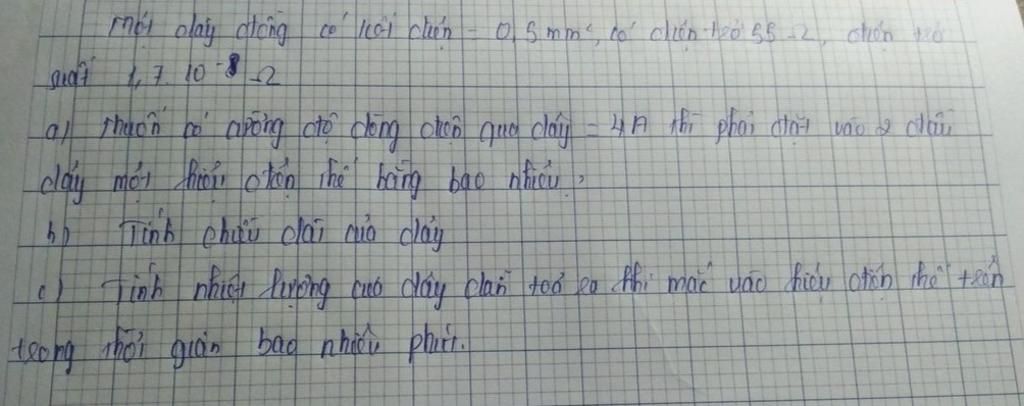 Một dây đồng có tiết diện = 0,5 mm², có điện trở 55 Ω, điện trở
suất 1,7. 10⁻⁸ Ω
a) Muốn có cường độ dòng điện qua dây = 4A thì phải đặt vào 2 đầu
dây một hiệu điện thế bằng bao nhiêu,
b) Tính chiều dài của dây
c) Tính nhiệt lượng của dây dẫn toả ra khi mắc vào hiệu điện thế trên
trong thời gian bao nhiêu phút.